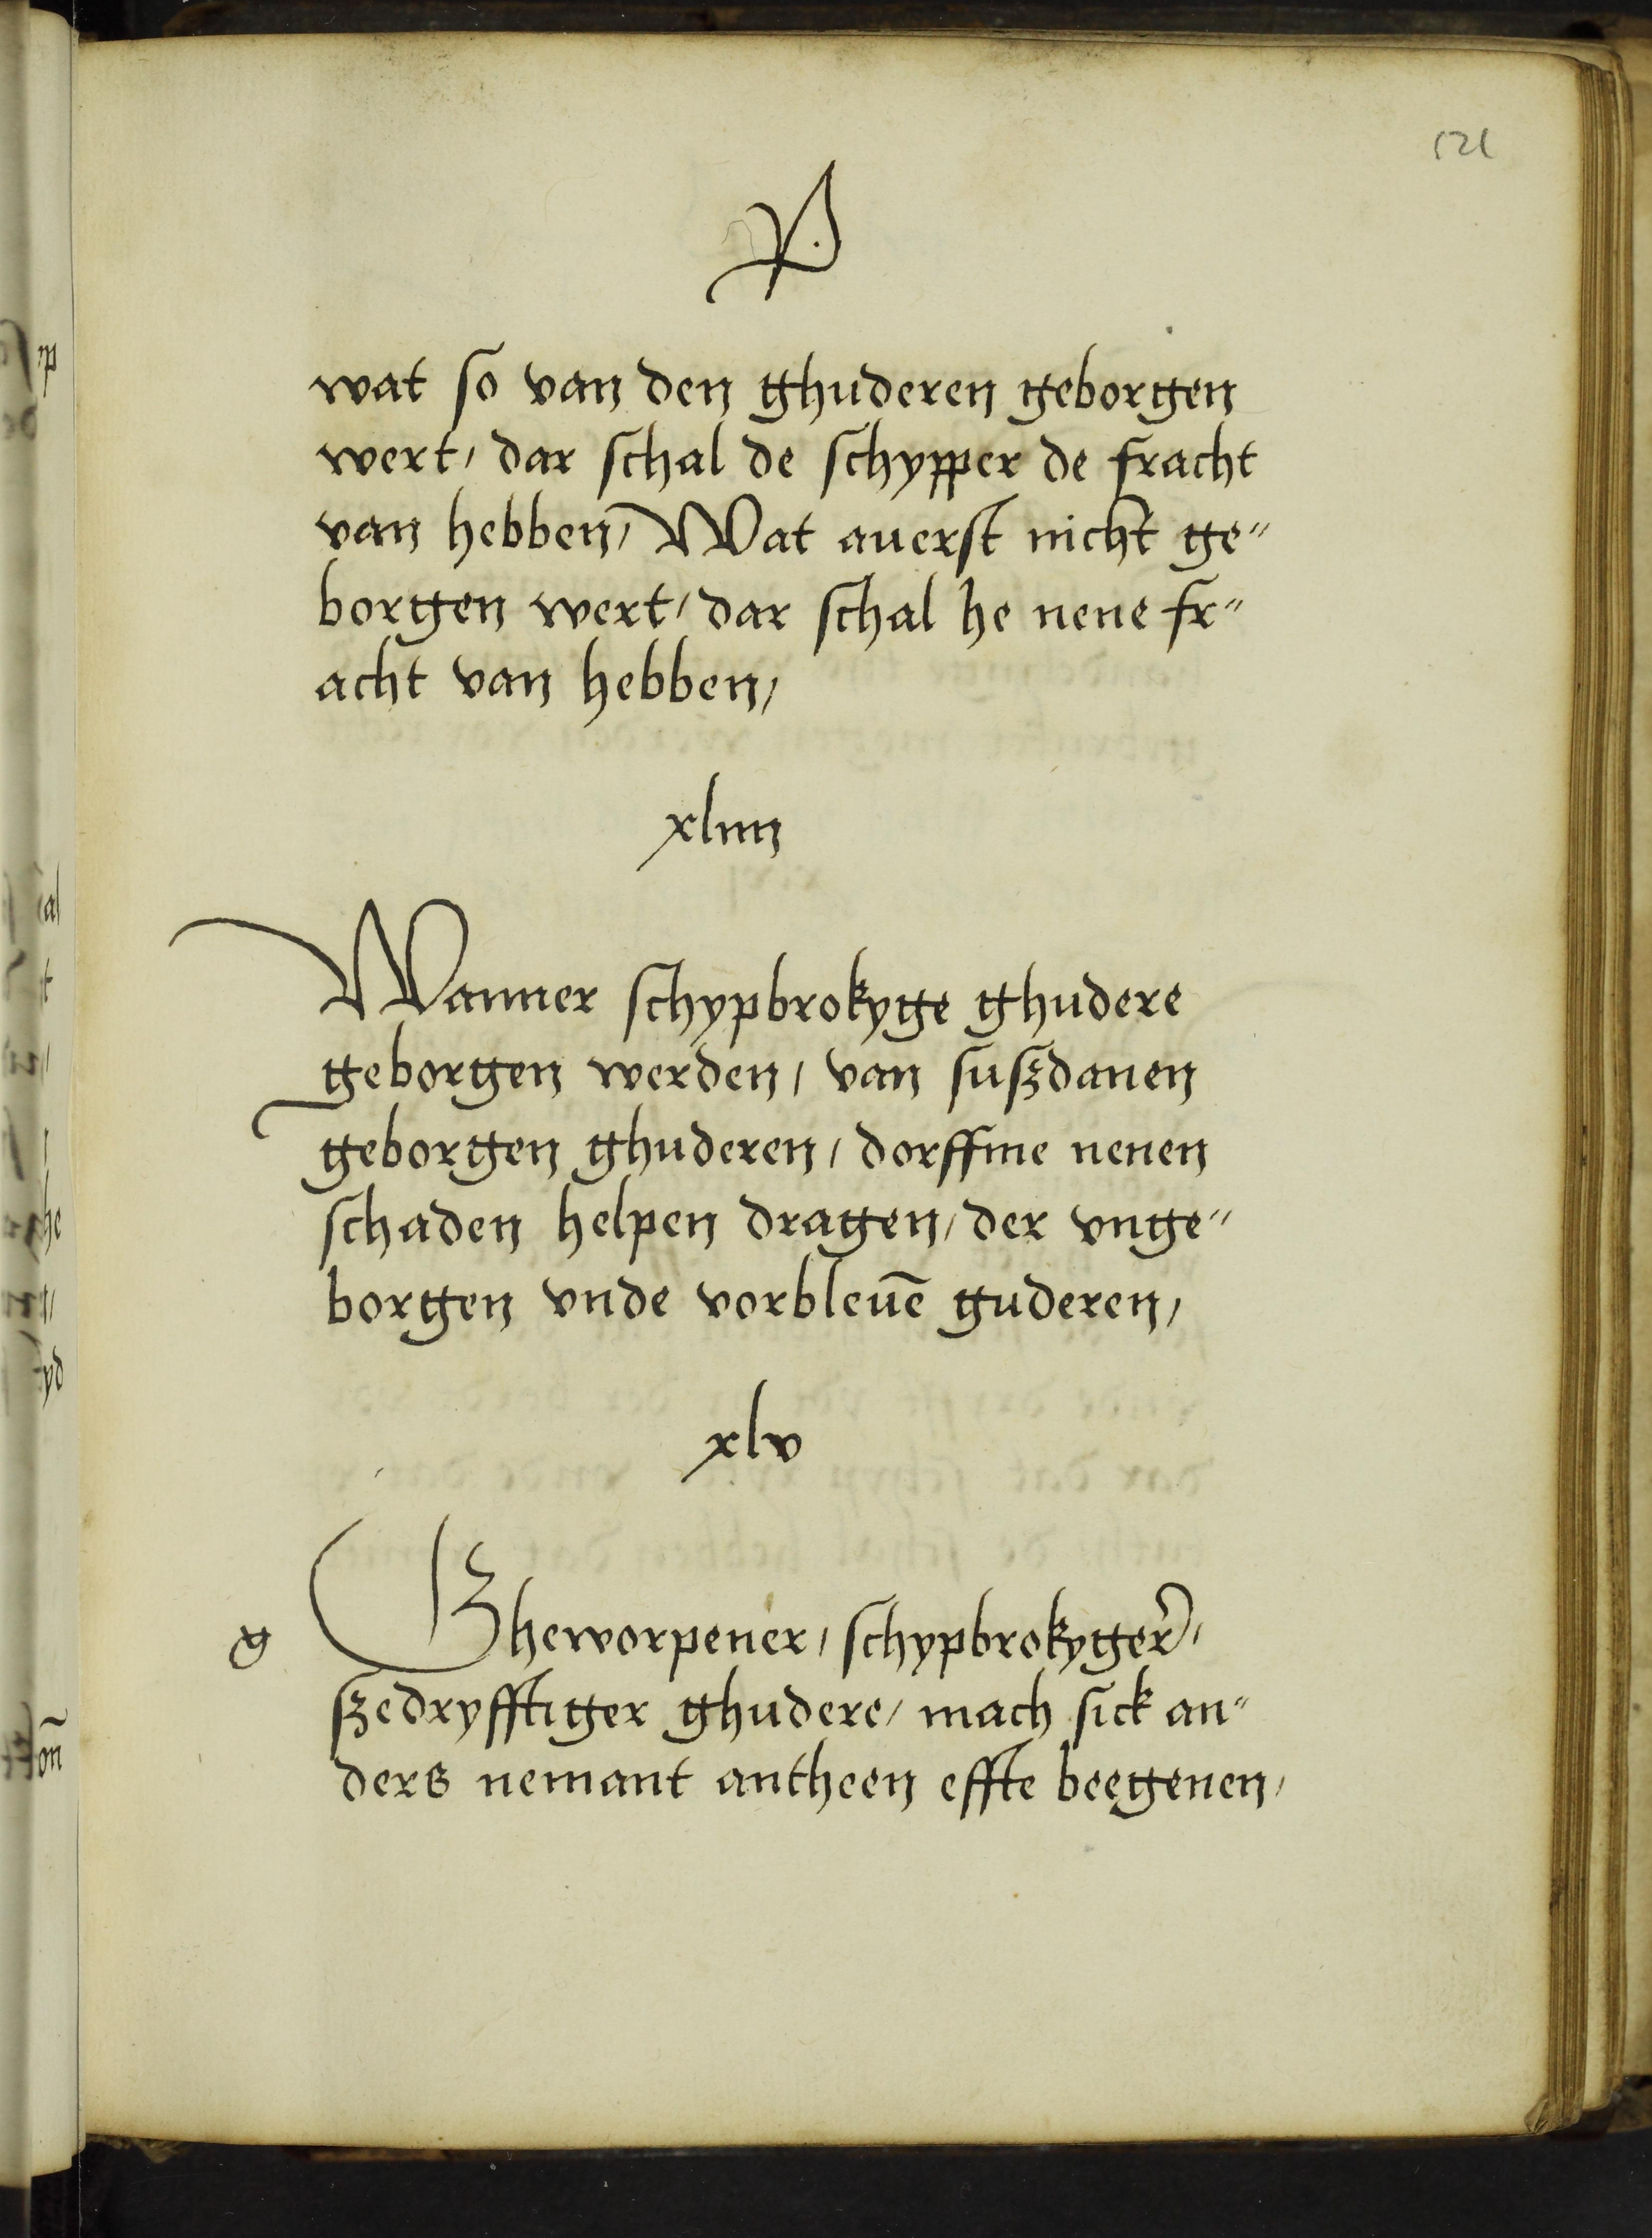 121
P
wat so van den ghuderen geborgen
wert, dar schal de schypper de fracht
van hebben, Wat auerst nicht ge"
borgen wert, dar schal he nene fr"
acht van hebben,
xliiij
Wanner schypbrokyge ghudere
geborgen werden, van suszdanen
geborgen ghuderen, dorffme nenen
schaden helpen dragen, der vnge"
borgen vnde vorbleuē guderen,
xlv
g Gheworpener, schypbrokyger,
szedryfftiger ghudere, mach sick an"
ders nemant antheen effte beegenen,